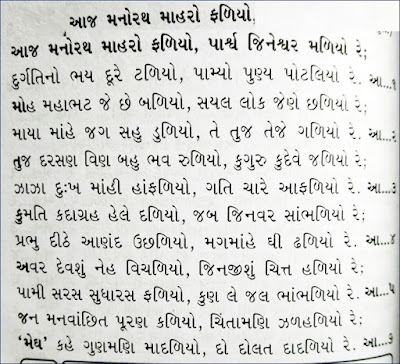 આજ મનોરથ માહરો ફળિયો
આજ મનોરથ માહરો ફળિયો, પાર્શ્વ જિનેશ્વર મળિયો રે;
દુર્ગતિનો ભય દૂરે ટળિયો, પામ્યો પુણ્ય પોટલિયો રે. આ...૧
મોહ મહાભટ જે છે બળિયો, સયલ લોક જેણે છળિયો રે;
માયા માંહે જગ સહુ ડુળિયો, તે તુજ તેજે ગળિયો રે. આ...૨
તુજ દરસણ વિણ બહુ ભવ રુળિયો, કુગુરુ કુદેવે જળિયો રે;
ઝાઝા દુઃખ માંહી હાંફળિયો, ગતિ ચારે આફળિયો રે. આ...૩
કુમતિ કદાગ્રહ હેલે દળિયો, જબ જિનવર સાંભળિયો રે;
પ્રભુ દીઠે આણંદ ઉછળિયો, મગમાંહે ઘી ઢળિયો રે. આ...૪
અવર દેવશું નેહ વિચળિયો, જિનજીશું ચિત્ત હળિયો રે;
પામી સરસ સુધારસ ફળિયો, કુણ લે જલ ભાંભળિયો રે. આ...૫
જન મનવાંછિત પૂરણ કળિયો, ચિંતામણિ ઝળહળિયો રે;
'મેઘ' કહે ગુણમણિ માદળિયો, દો દોલત દાદળિયો રે. આ...૬